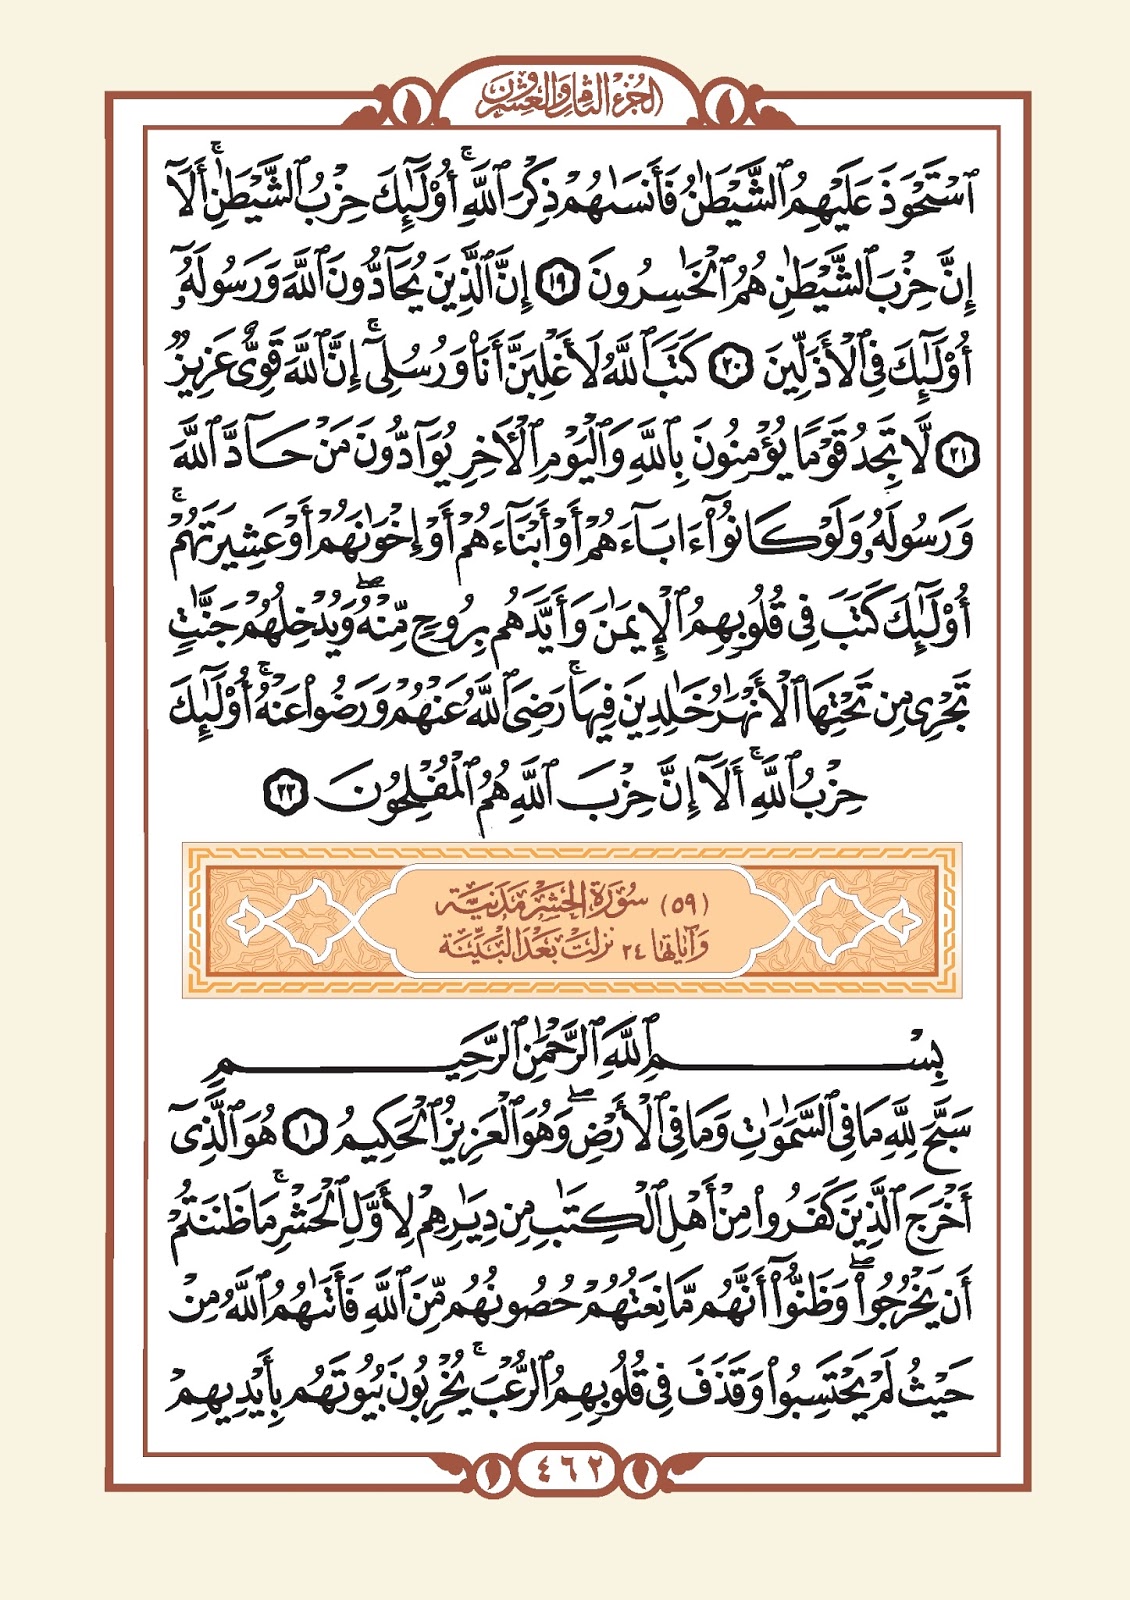 الجزء الثامن والعشرون
ٱسْتَحْوَذَ عَلَيْهِمُ ٱلشَّيْطَٰنُ فَأَنسَىٰهُمْ ذِكْرَ ٱللَّهِۚ أُو۟لَٰٓئِكَ حِزْبُ ٱلشَّيْطَٰنِۚ أَلَآ
إِنَّ حِزْبَ ٱلشَّيْطَٰنِ هُمُ ٱلْخَٰسِرُونَ ١٩ إِنَّ ٱلَّذِينَ يُحَآدُّونَ ٱللَّهَ وَرَسُولَهُۥٓ
أُو۟لَٰٓئِكَ فِى ٱلْأَذَلِّينَ ٢٠ كَتَبَ ٱللَّهُ لَأَغْلِبَنَّ أَنَا۠ وَرُسُلِىٓۚ إِنَّ ٱللَّهَ قَوِىٌّ عَزِيزٌ
٢١ لَّا تَجِدُ قَوْمًا يُؤْمِنُونَ بِٱللَّهِ وَٱلْيَوْمِ ٱلْأَخِرِ يُوَآدُّونَ مَنْ حَآدَّ ٱللَّهَ
وَرَسُولَهُۥ وَلَوْ كَانُوٓا۟ ءَابَآءَهُمْ أَوْ أَبْنَآءَهُمْ أَوْ إِخْوَٰنَهُمْ أَوْ عَشِيرَتَهُمْۚ
أُو۟لَٰٓئِكَ كَتَبَ فِى قُلُوبِهِمُ ٱلْإِيمَٰنَ وَأَيَّدَهُم بِرُوحٍ مِّنْهُۖ وَيُدْخِلُهُمْ جَنَّٰتٍ
تَجْرِى مِن تَحْتِهَا ٱلْأَنْهَٰرُ خَٰلِدِينَ فِيهَاۚ رَضِىَ ٱللَّهُ عَنْهُمْ وَرَضُوا۟ عَنْهُۚ أُو۟لَٰٓئِكَ
حِزْبُ ٱللَّهِۚ أَلَآ إِنَّ حِزْبَ ٱللَّهِ هُمُ ٱلْمُفْلِحُونَ ٢٢
(٥٩) سُورَةُ الحَشْرِ مَدَنِيَّة
وَآيَاتُهَا ٢٤ نَزَلَتْ بَعْدَ البَيِّنَة
بِسْمِ ٱللَّهِ ٱلرَّحْمَٰنِ ٱلرَّحِيمِ
سَبَّحَ لِلَّهِ مَا فِى ٱلسَّمَٰوَٰتِ وَمَا فِى ٱلْأَرْضِۖ وَهُوَ ٱلْعَزِيزُ ٱلْحَكِيمُ ١ هُوَ ٱلَّذِىٓ
أَخْرَجَ ٱلَّذِينَ كَفَرُوا۟ مِنْ أَهْلِ ٱلْكِتَٰبِ مِن دِيَٰرِهِمْ لِأَوَّلِ ٱلْحَشْرِۚ مَا ظَنَنتُمْ
أَن يَخْرُجُوا۟ۖ وَظَنُّوٓا۟ أَنَّهُم مَّانِعَتُهُمْ حُصُونُهُم مِّنَ ٱللَّهِ فَأَتَىٰهُمُ ٱللَّهُ مِنْ
حَيْثُ لَمْ يَحْتَسِبُوا۟ وَقَذَفَ فِى قُلُوبِهِمُ ٱلرُّعْبَۚ يُخْرِبُونَ بُيُوتَهُم بِأَيْدِيهِمْ
٤٦٢